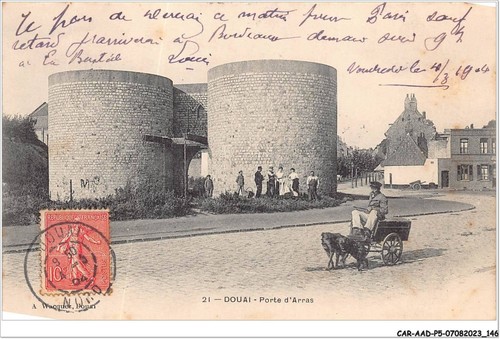 Je pars de Douai ce matin pour Paris sauf
retard j'arriverai à Bordeaux demain soir 9h
à La Bastide
Louis
Vendredi le 4/3 1904
10
DOUAI
NORD
A. Wacquez, Douai
21 — DOUAI - Porte d'Arras
CAR-AAD-P5-07082023_146